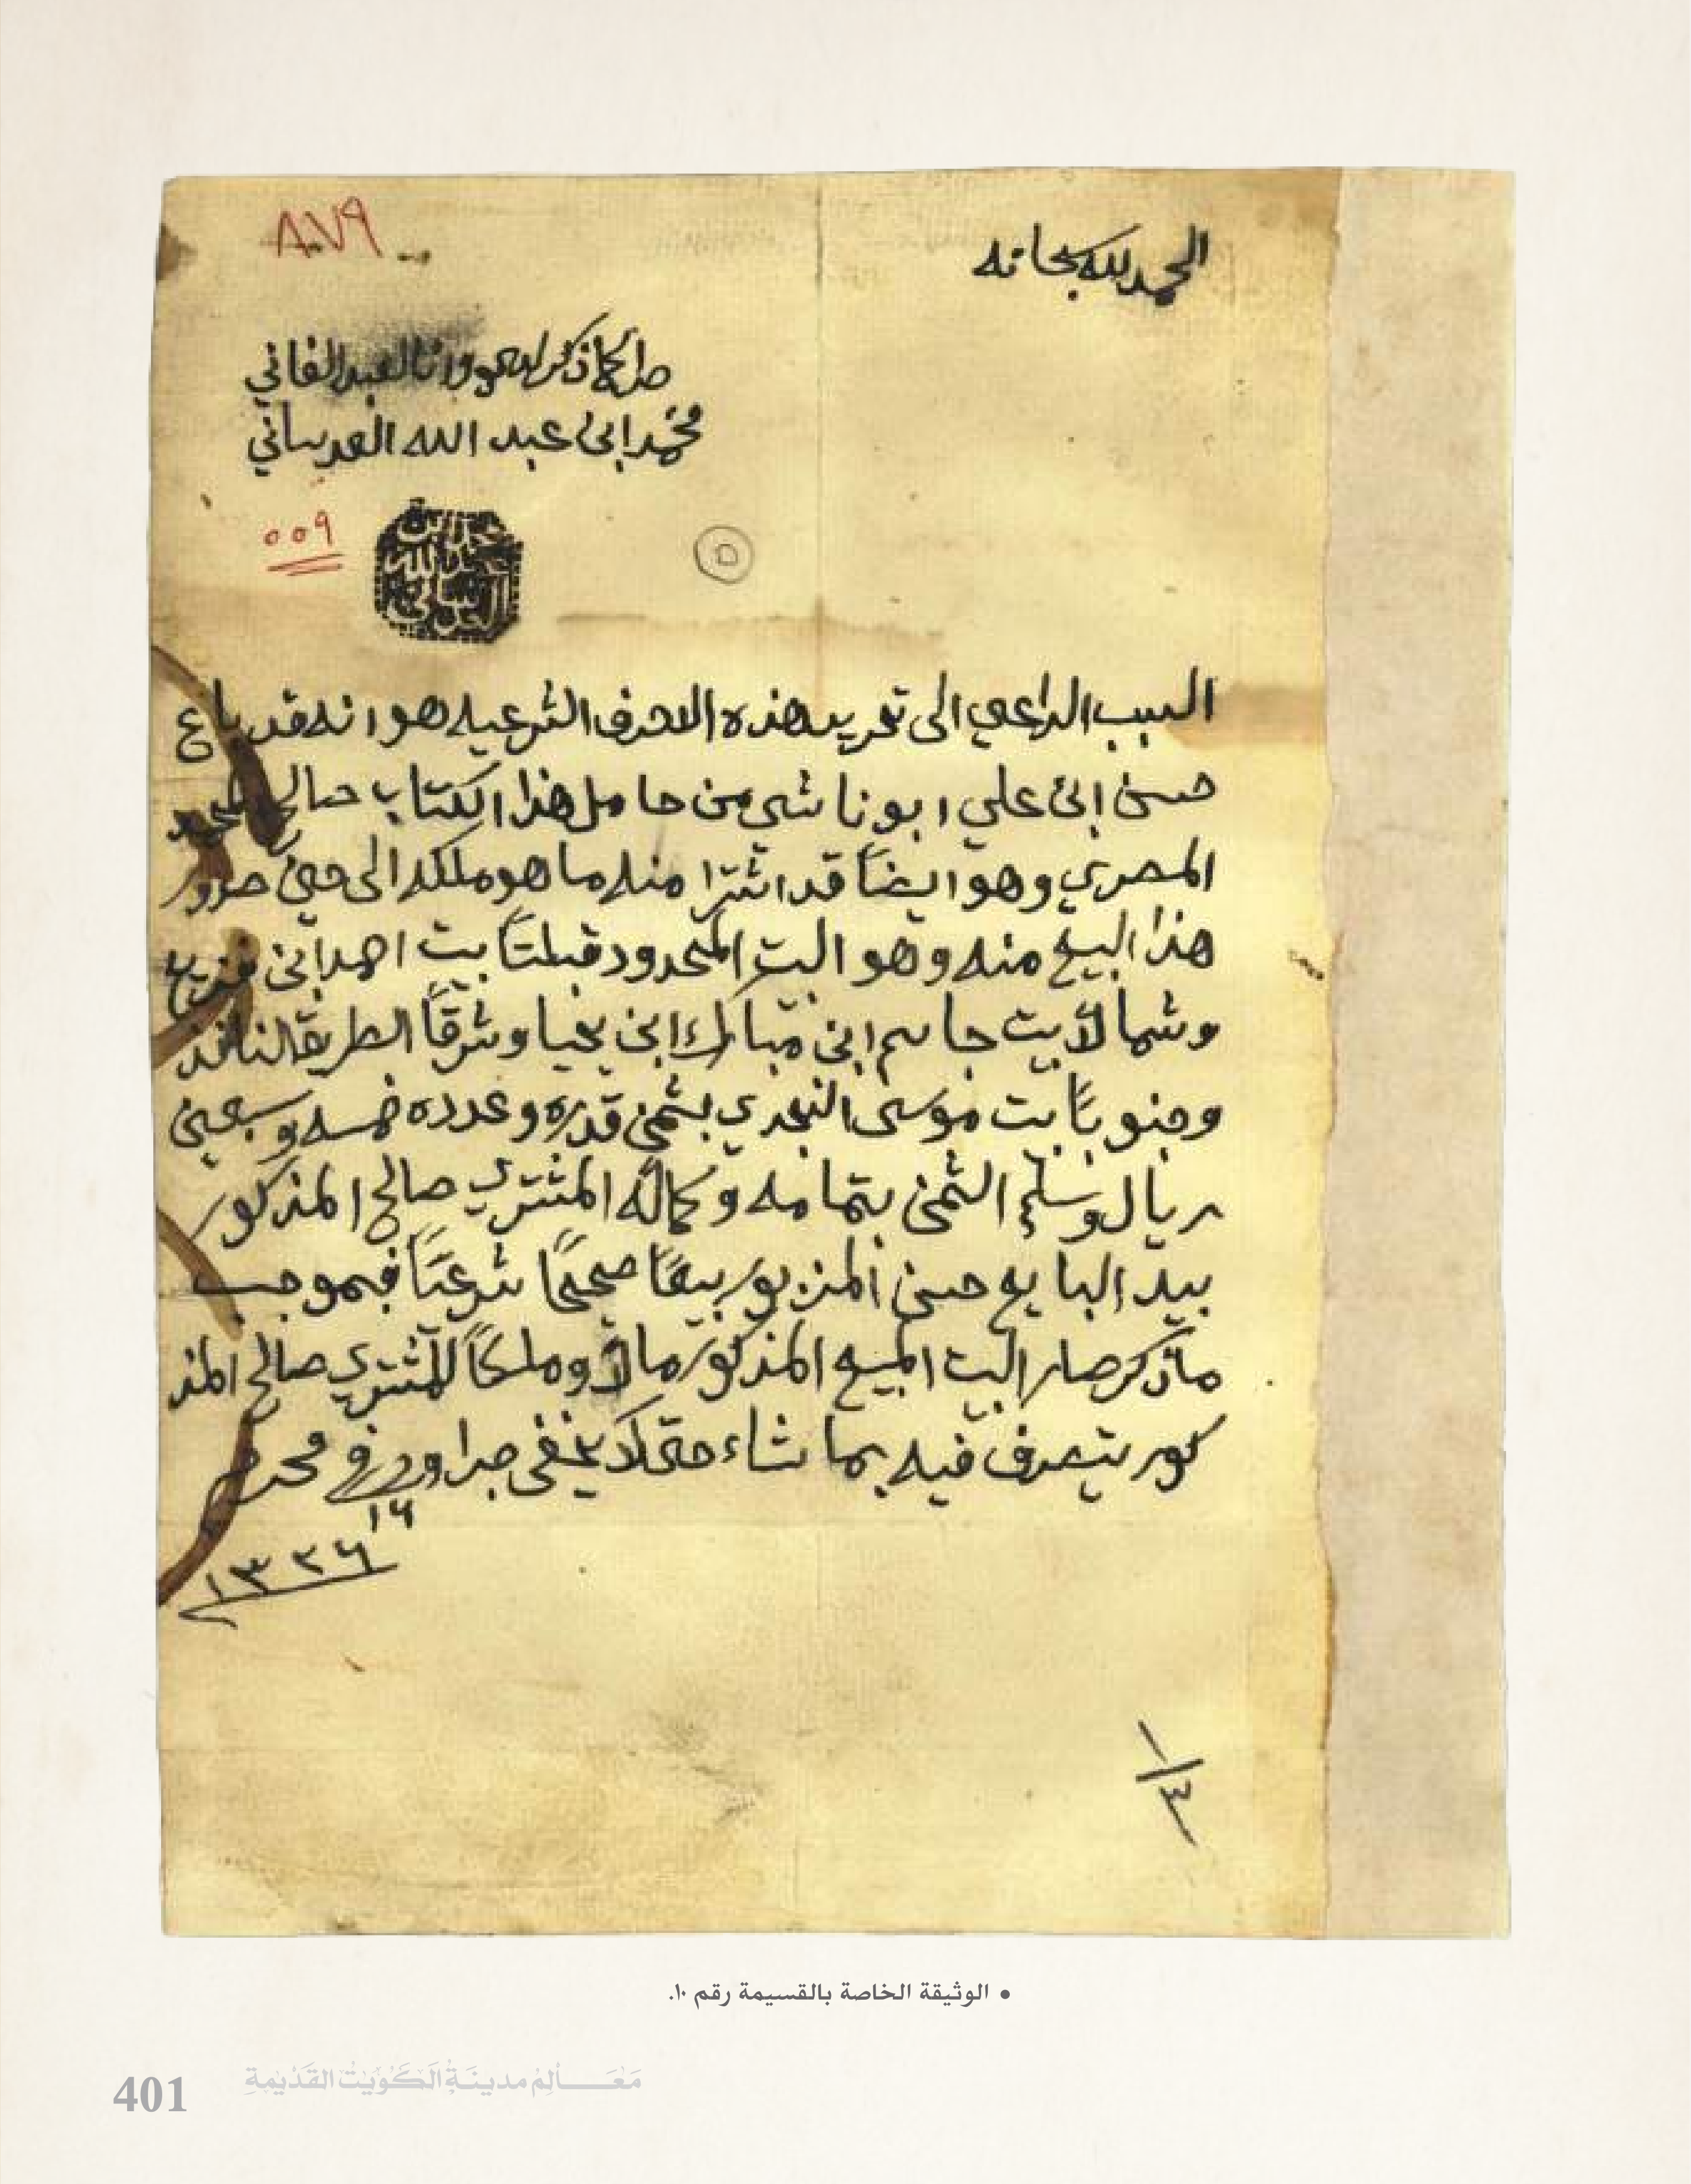 الحمد لله سبحانه
٨٧٩
كما ذكر لدي وانا العبد الفاني
محمد ابن عبد الله العدساني
٥٥٩
٥
السبب الداعي الى تحرير هذه الاحرف الشرعيه هو انه قد باع
حسن ابن علي ابو ناشي من حامل هذا الكتاب صالح المحمد
المصري وهو ايضاً قد اشترا منه ما هو ملكه الى حين صدور
هذا البيع منه وهو البيت المحدود قبلتاً بيت احمد ابن فزيع
وشمالاً بيت جاسم ابن مبارك ابن يحيا وشرقاً الطريق النافذ
وجنوباً بيت موسى النجدي بثمن قدره وعدده خمسه وسبعين
ريال وسلم الثمن بتمامه وكماله المشتري صالح المذكور
بيد البايع حسن المزبور بيعاً صحيحاً شرعياً فبموجب
ما ذكر صار البيت المبيع المذكور مالاً وملكاً للمشتري صالح المذ
كور يتصرف فيه بما شاء حتى لا يخفى جرا وحرر في محرم
١٦
١٣٣٦
• الوثيقة الخاصة بالقسيمة رقم ١٠.
مَعَالِم مدينَة الكُوَيت القَدْيمَة
401